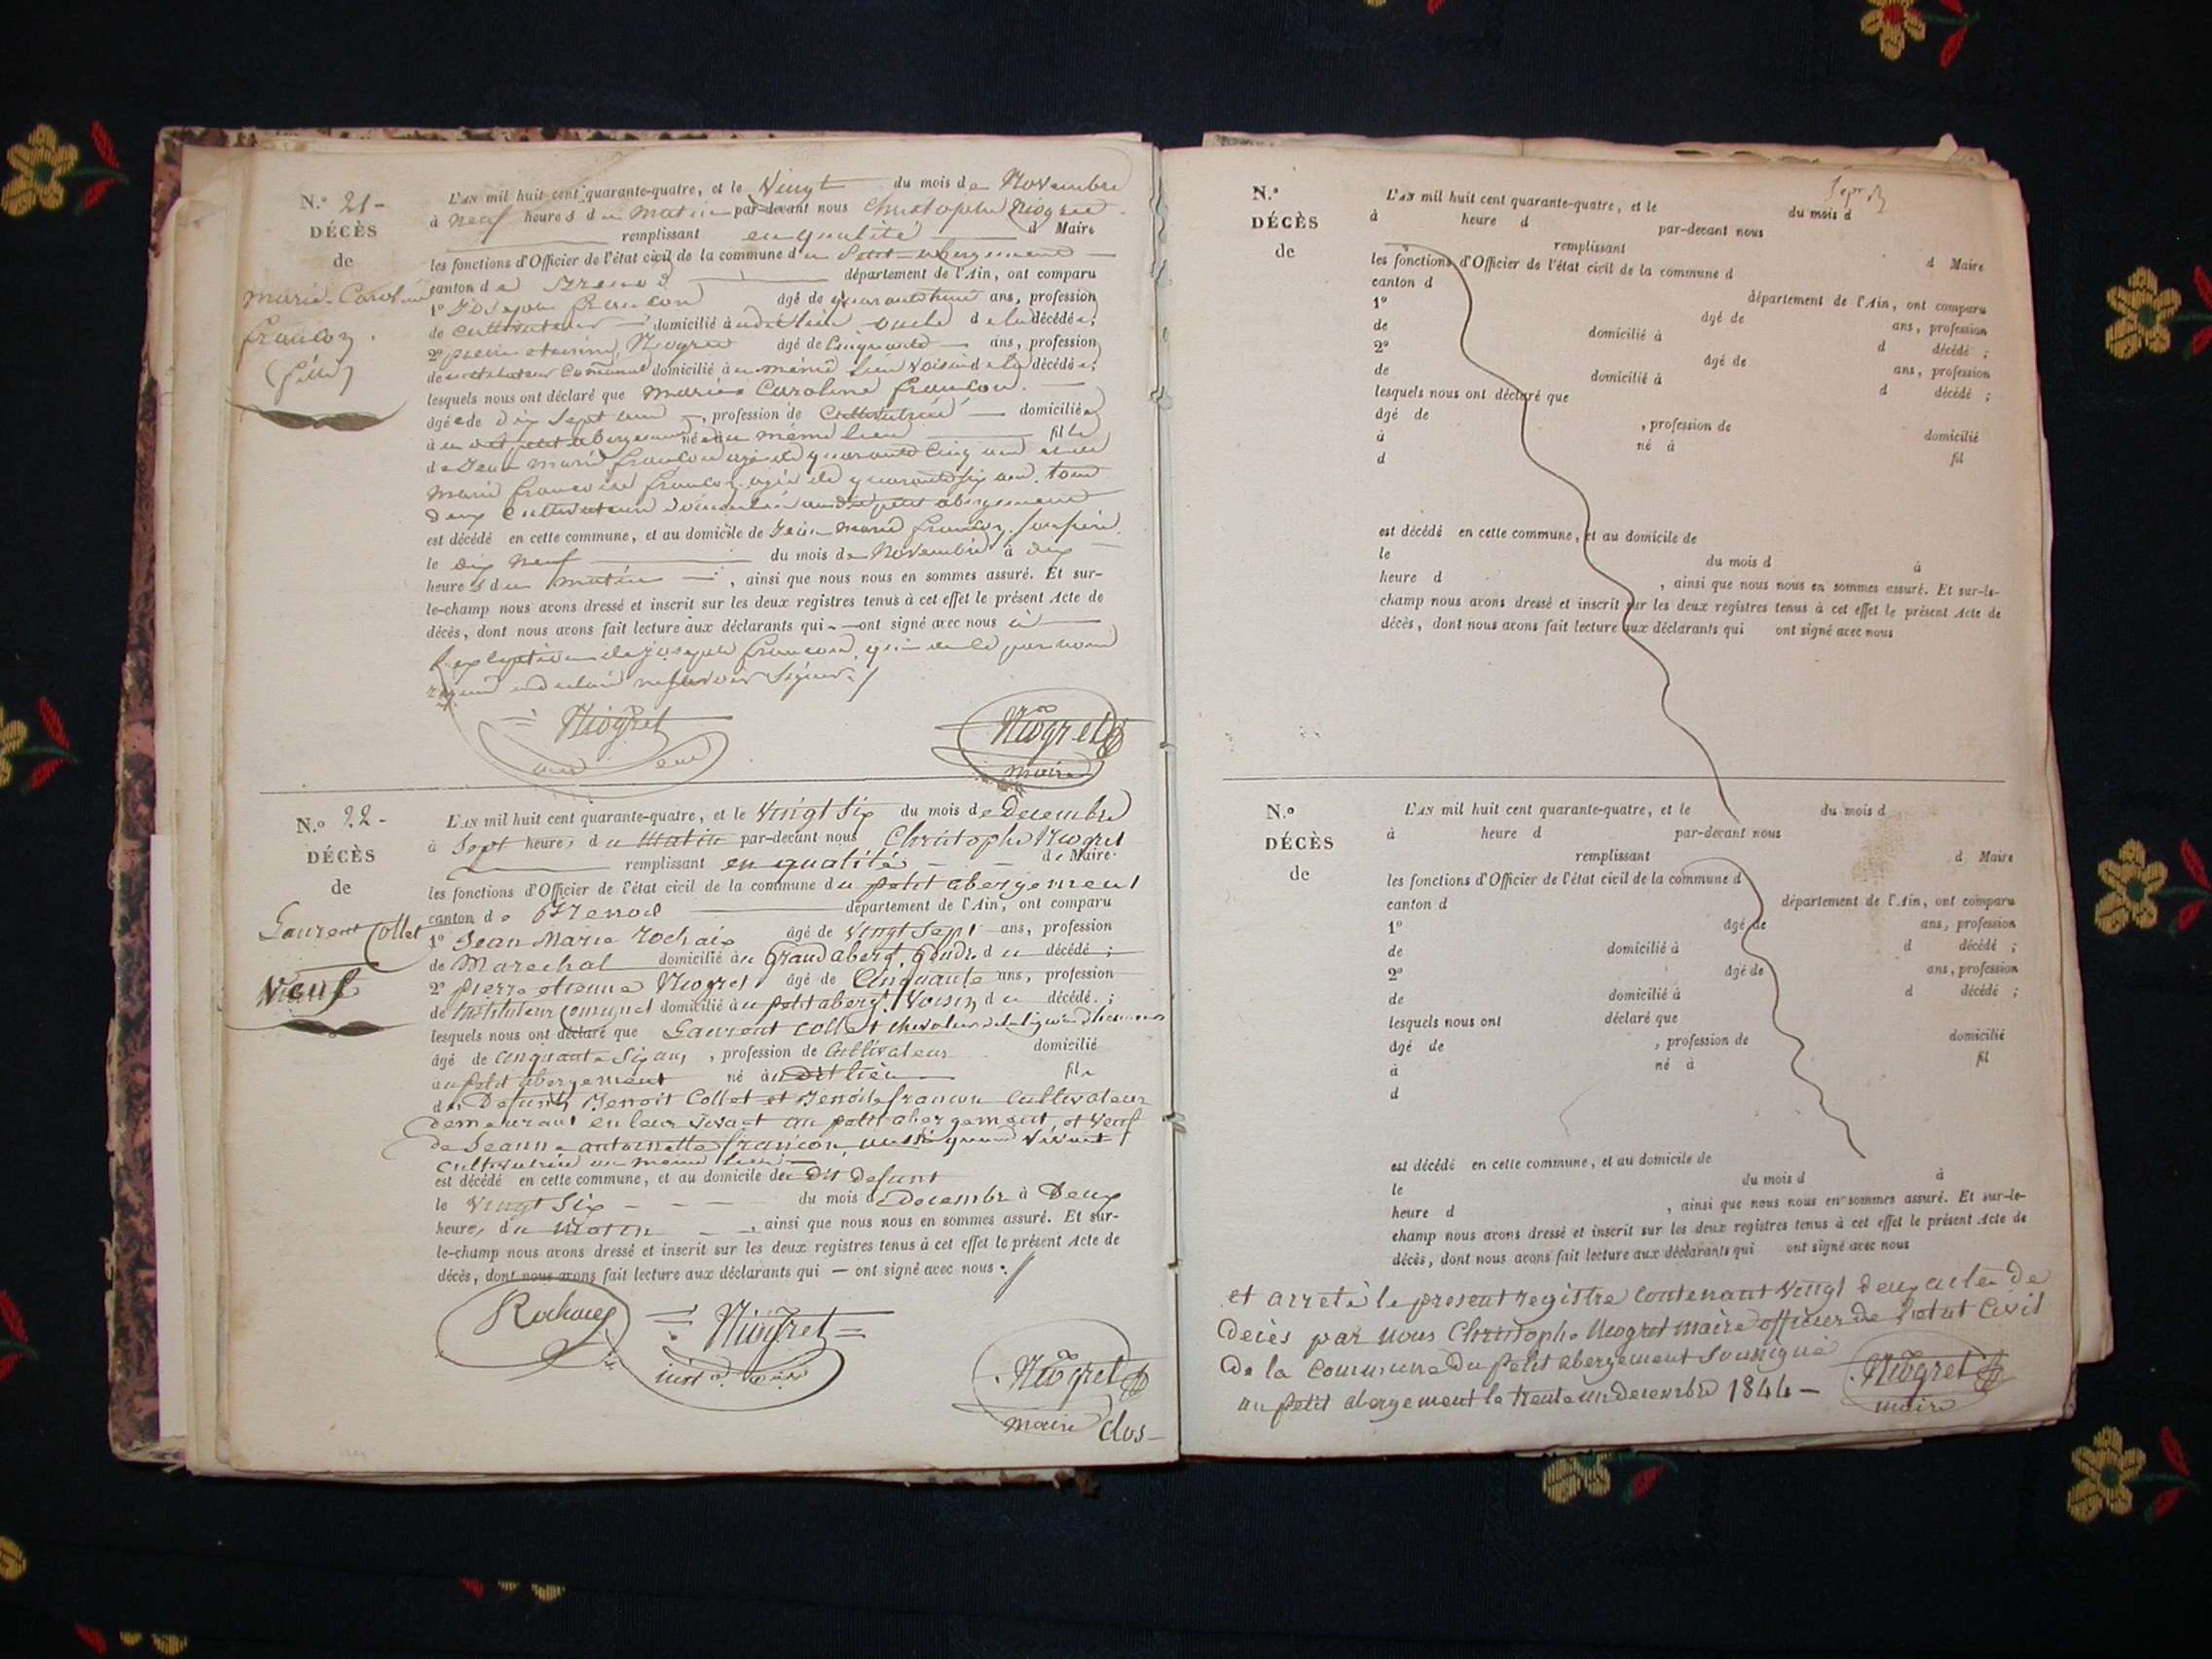 N.° 21 -
DÉCÈS
de
Marie Caroline
françon
(fille)
L'AN mil huit cent quarante-quatre, et le Vingt du mois de Novembre
à neuf heures du matin par-devant nous Christophe Niogret
remplissant en qualité d Maire
les fonctions d'Officier de l'état civil de la commune du Petit abergement
canton de Brenod département de l'Ain, ont comparu
1° Joseph françon âgé de ans, profession
de cultivateur domicilié audit lieu oncle de la décédée;
2° pierre etienne Niogret âgé de Cinquante ans, profession
de instituteur Comunal domicilié au même lieu voisin de la décédée;
lesquels nous ont déclaré que Marie Caroline françon
âgée de dix sept ans, profession de Cultivatrice domiciliée
à u dit petit abergement née au même lieu fille
de Jean Marie françon agé de quarante Cinq ans et de
Marie françoise françon agée de quarante six ans tous
deux Cultivateurs domiciliés au dit petit abergement
est décédé en cette commune, et au domicile de Jean Marie françon, son père
le dix neuf du mois de Novembre à dix
heures du matin, ainsi que nous nous en sommes assuré. Et sur-
le-champ nous avons dressé et inscrit sur les deux registres tenus à cet effet le présent Acte de
décès, dont nous avons fait lecture aux déclarants qui — ont signé avec nous à
l'exception de joseph françon, qui
declaré ne savoir signer./
Niogret
Niogret
maire
N.° 22 -
DÉCÈS
de
Laurent Collet
Veuf
L'AN mil huit cent quarante-quatre, et le Vingt Six du mois de Decembre
à Sept heures du matin par-devant nous Christophe Niogret
remplissant en qualité de Maire
les fonctions d'Officier de l'état civil de la commune du petit abergement
canton de Brenod département de l'Ain, ont comparu
1° Jean Marie Rochaix âgé de Vingt Sept ans, profession
de Marechal domicilié au Grand aberg.t Gendre du décédé;
2° pierre etienne Niogret âgé de Cinquante ans, profession
de Instituteur Comunal domicilié au petit aberg.t Voisin du décédé.;
lesquels nous ont déclaré que Laurent Collet chevalier de la légion d'honneur
âgé de Cinquante Six ans, profession de Cultivateur domicilié
au petit abergement né au dit lieu fils
des Defunts Benoit Collet et Benoite françon Cultivateurs
demeurant en leur vivant au petit abergement, et Veuf
de Jeanne antoinette françon, aussi quand vivait
Cultivatrice au même lieu
est décédé en cette commune, et au domicile du Dit Defunt
le Vingt Six - - - du mois de Decembre à Deux
heures du Matin - -, ainsi que nous nous en sommes assuré. Et sur-
le-champ nous avons dressé et inscrit sur les deux registres tenus à cet effet le présent Acte de
décès, dont nous avons fait lecture aux déclarants qui — ont signé avec nous ./
Rochaix
Niogret
Niogret
maire
Clos -
N.°
DÉCÈS
de
L'AN mil huit cent quarante-quatre, et le du mois d
à heure d par-devant nous
remplissant d Maire
les fonctions d'Officier de l'état civil de la commune d
canton d département de l'Ain, ont comparu
1° âgé de ans, profession
de domicilié à d décédé ;
2° âgé de ans, profession
de domicilié à d décédé ;
lesquels nous ont déclaré que
âgé de , profession de domicilié
à né à fil
d
est décédé en cette commune, et au domicile de
le du mois d à
heure d , ainsi que nous nous en sommes assuré. Et sur-le-
champ nous avons dressé et inscrit sur les deux registres tenus à cet effet le présent Acte de
décès, dont nous avons fait lecture aux déclarants qui ont signé avec nous
N.°
DÉCÈS
de
L'AN mil huit cent quarante-quatre, et le du mois d
à heure d par-devant nous
remplissant d Maire
les fonctions d'Officier de l'état civil de la commune d
canton d département de l'Ain, ont comparu
1° âgé de ans, profession
de domicilié à d décédé ;
2° âgé de ans, profession
de domicilié à d décédé ;
lesquels nous ont déclaré que
âgé de , profession de domicilié
à né à fil
d
est décédé en cette commune, et au domicile de
le du mois d à
heure d , ainsi que nous nous en sommes assuré. Et sur-le-
champ nous avons dressé et inscrit sur les deux registres tenus à cet effet le présent Acte de
décès, dont nous avons fait lecture aux déclarants qui ont signé avec nous
et arreté le present registre Contenant Vingt deux actes de
decès par nous Christophe Niogret maire officier de l'etat Civil
de la Commune du petit abergement soussigné
au petit abergement le trente un decembre 1844 -
Niogret
maire